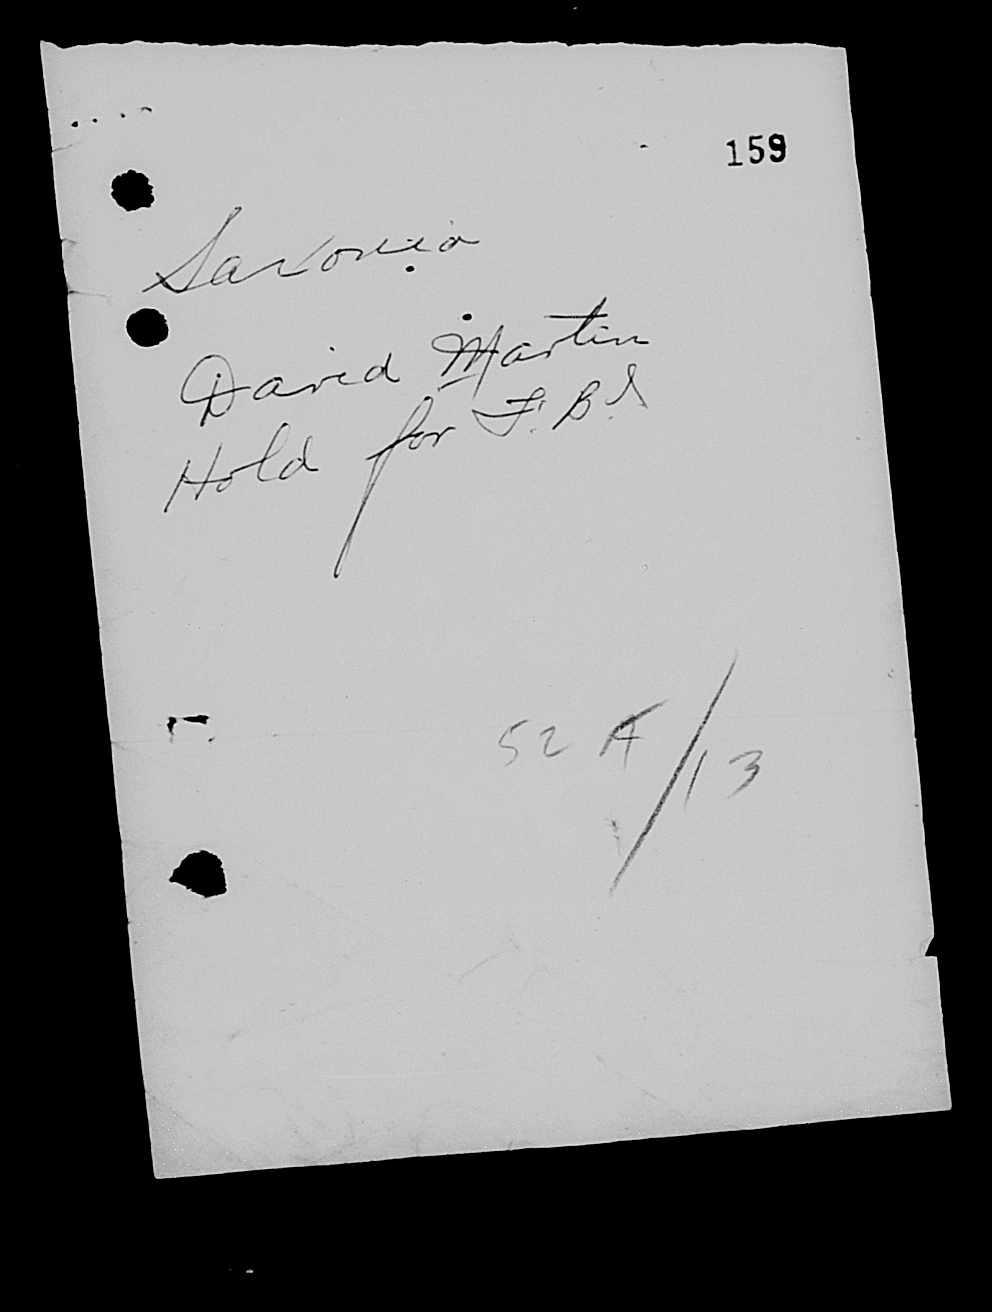 159
Saxonia
David Martin
Hold for F.B.I
52 A/13